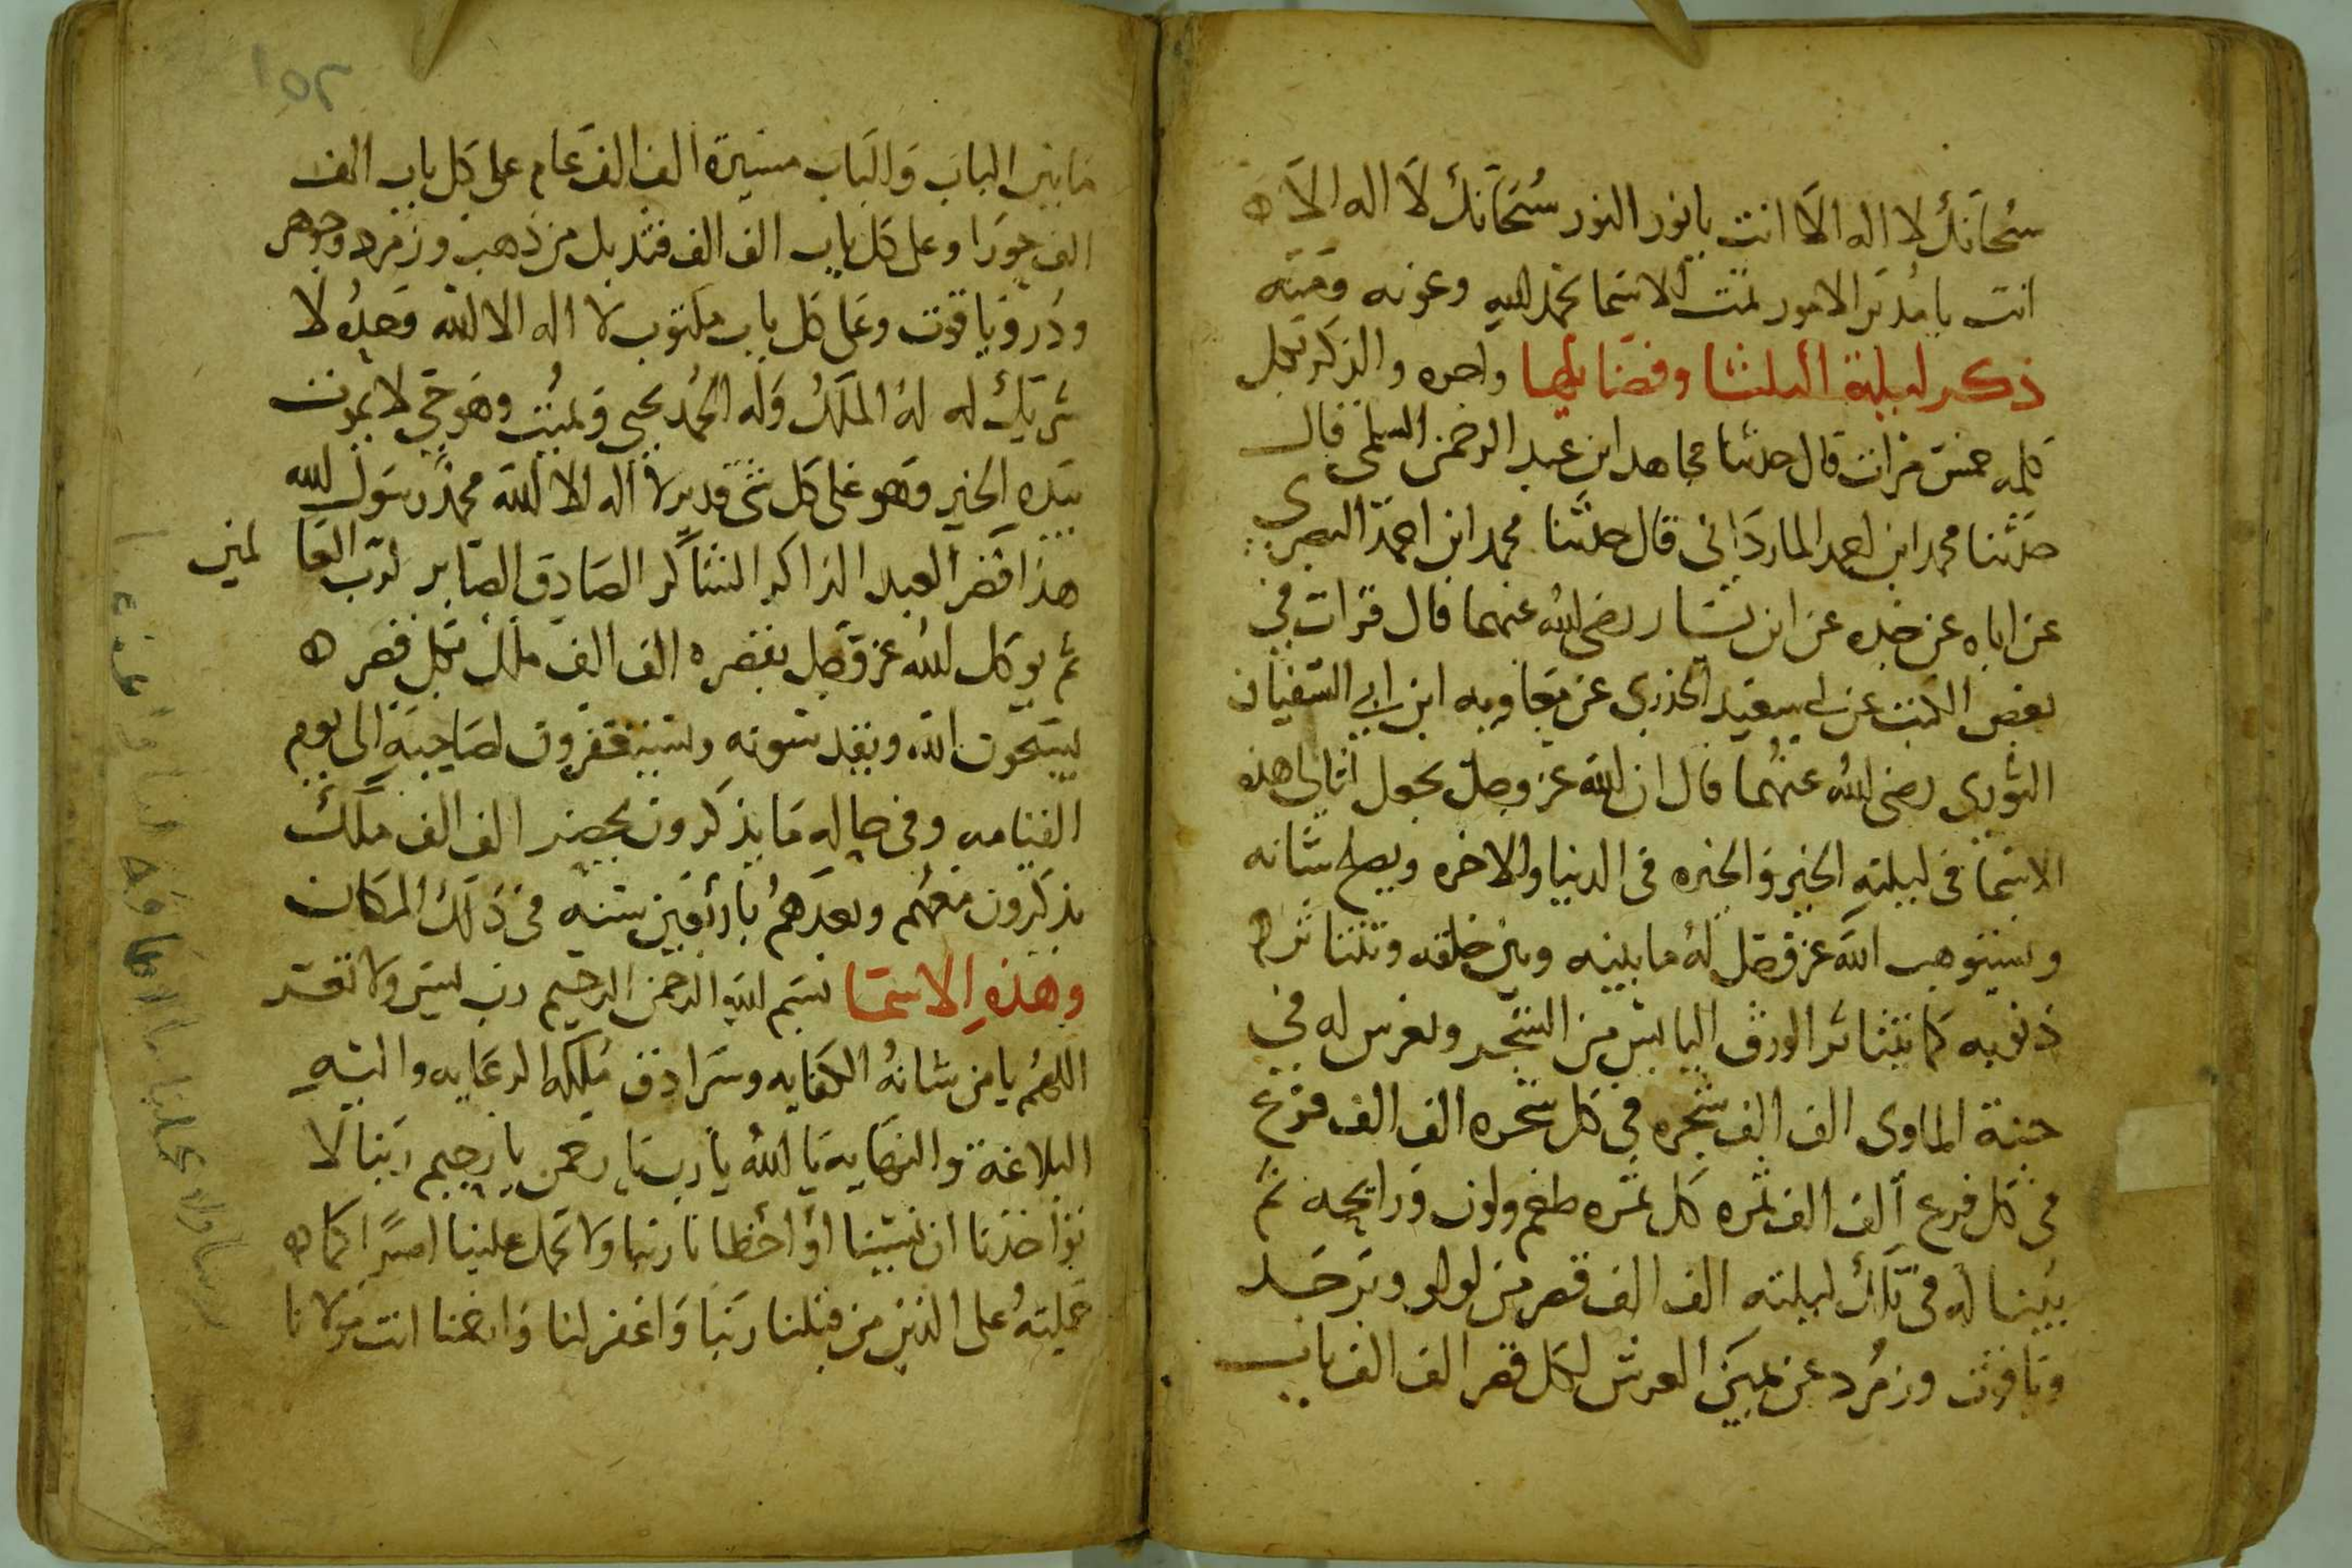 سبحانك لا اله الا انت يا نور النور سبحانك لا اله الا ه
انت يا مدبر الامور تمت الاسما بحمد الله وعونه ومنه
ذكر ليلة الثلثا وفضايلها واجره والذكر تجل
كلمه خمس مرات قال حدثنا مجاهد ابن عبد الرحمن السلمي قال
حدثنا محمد ابن احمد المارداني قال حدثنا محمد ابن احمد البصري
عن اباه عن جده عن ابن بشار رضي الله عنهما قال قرات في
بعض الكتب عن ابي سعيد الخذري عن معاويه ابن ابي السفيان
الثوري رضي الله عنهما قال ان الله عز وجل يجعل لتالي هذه
الاسما في ليلته الخير والخيره في الدنيا والاخره ويصلح شانه
ويستوهب الله عز وجل له ما بينه وبين خلقه وتتناثر ه
ذنوبه كما يتناثر الورق اليابس من الشجر ويغرس له في
جنة الماوى الف الف شجره في كل شجره الف الف فرع
في كل فرع الف الف ثمره كل ثمره طعم ولون ورايحه ثم
يبنا له في تلك ليلته الف الف قصر من لولو وبرجد
وياقوت وزمرد عن يمين العرش لكل قصر الف الف باب
١٥٢
ما بين الباب والباب مسيرة الف الف عام على كل باب الف
الف حورا وعلى كل باب الف الف قنديل من ذهب وزمرد وجوهر
ودر وياقوت وعلى كل باب مكتوب لا اله الا الله وحده لا
شريك له له الملك وله الحمد يحيى ويميت وهو حي لا يموت
بيده الخير وهو على كل شي قدير لا اله الا الله محمد رسول الله
هذا قصر العبد الذاكر الشاكر الصادق الصابر لرب العا لمين
ثم يوكل الله عز وجل بقصره الف الف ملك بكل قصر ه
يسبحون الله ويقدسونه ويستغفرون لصاحبه الى يوم
القيامه وفي حاله ما يذكرون يحضر الف الف ملك
يذكرون معهم وبعدهم باربعين سنه في ذلك المكان
وهذه الاسما بسم الله الرحمن الرحيم رب يسر ولا تعسر
اللهم يا من شانه الكفايه وسرادق ملكه الرعايه واليه
البلاغة والنهايه يا الله يا رب يا رحمن يا رحيم ربنا لا
تواخذنا ان نسينا او اخطانا ربنا ولا تحمل علينا اصرا كما ه
حملته على الذين من قبلنا ربنا واغفر لنا وارحمنا انت مولانا